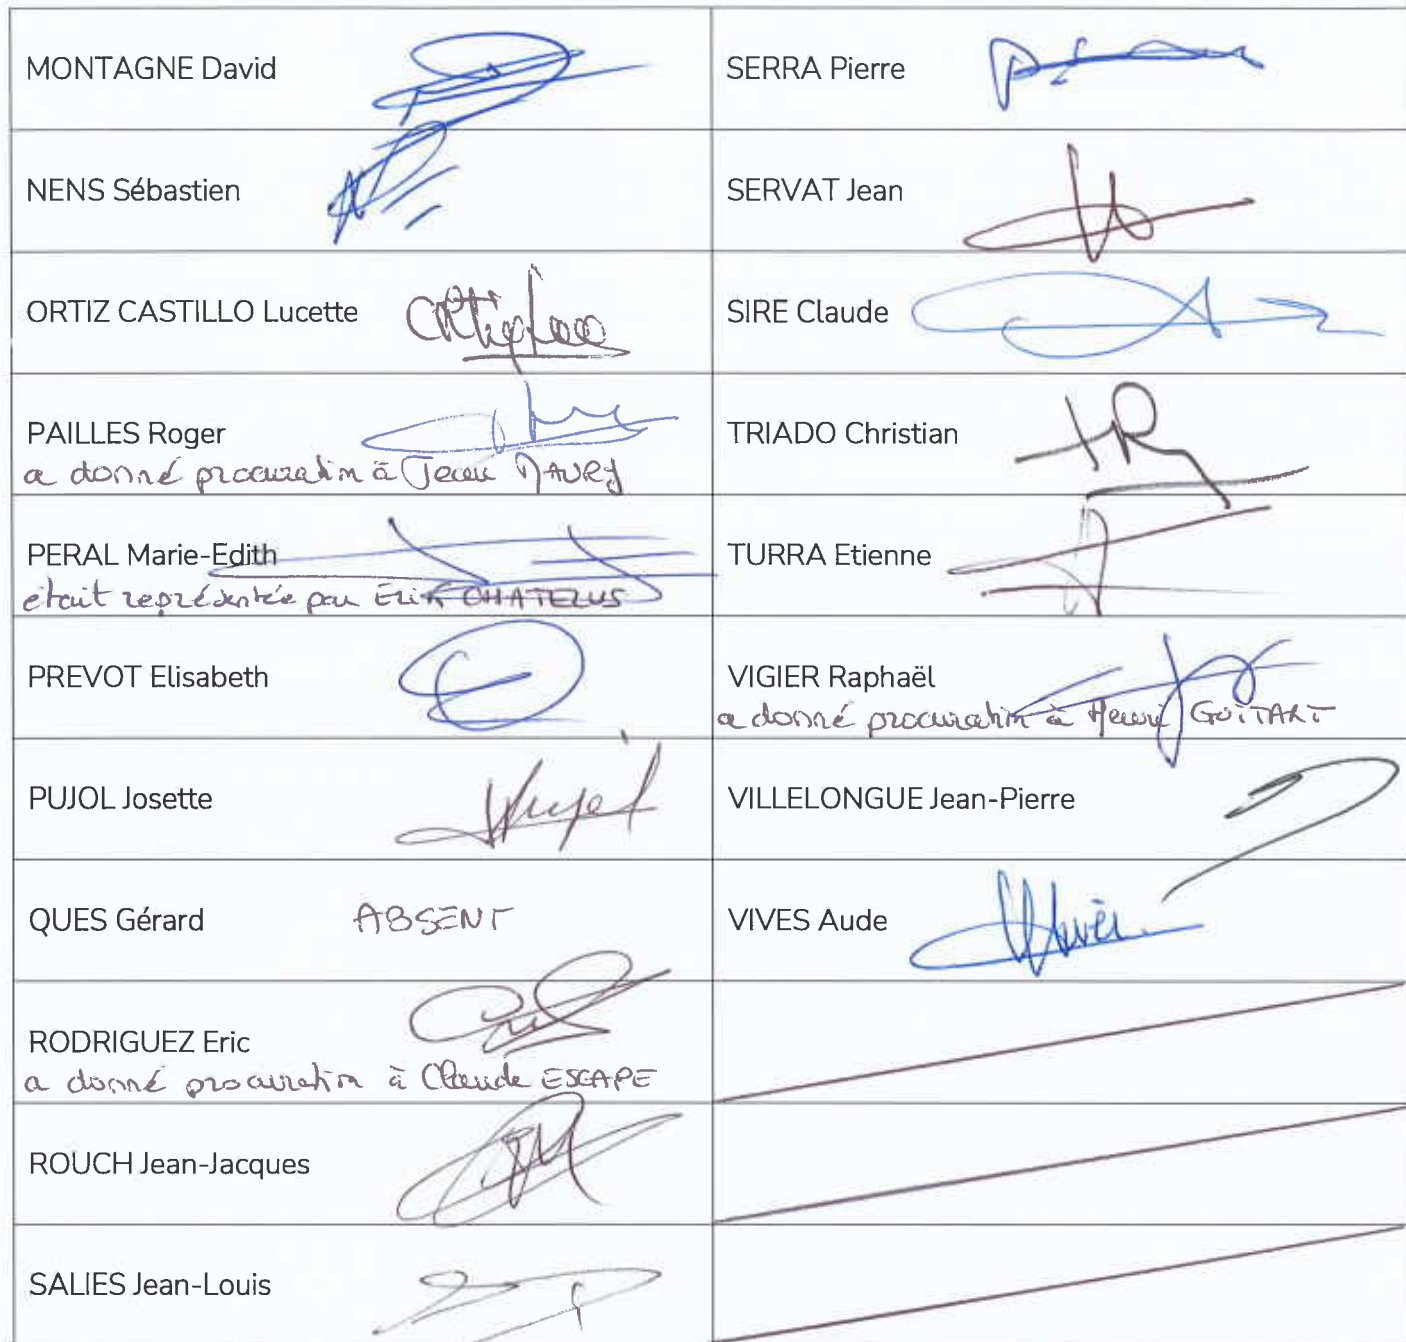 MONTAGNE David
SERRA Pierre
NENS Sébastien
SERVAT Jean
ORTIZ CASTILLO Lucette
SIRE Claude
PAILLES Roger
a donné procuration à Jean MAURY
TRIADO Christian
PERAL Marie-Edith
était représentée par Erik CHATELUS
TURRA Etienne
PREVOT Elisabeth
VIGIER Raphaël
a donné procuration à Henri GUITART
PUJOL Josette
Pujol
VILLELONGUE Jean-Pierre
QUES Gérard ABSENT
VIVES Aude
RODRIGUEZ Eric
a donné procuration à Claude ESCAPE
ROUCH Jean-Jacques
SALIES Jean-Louis